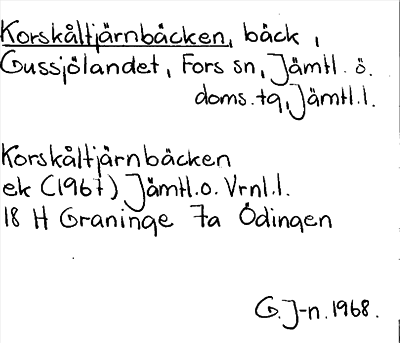 Korskåltjärnbäcken, bäck,
Gussjölandet, Fors sn, Jämtl. ö.
doms.tg, Jämtl.l.
Korskåltjärnbäcken
ek (1967) Jämtl.o. Vrnl.l.
18 H Graninge 7a Ödingen
G.J-n.1968.